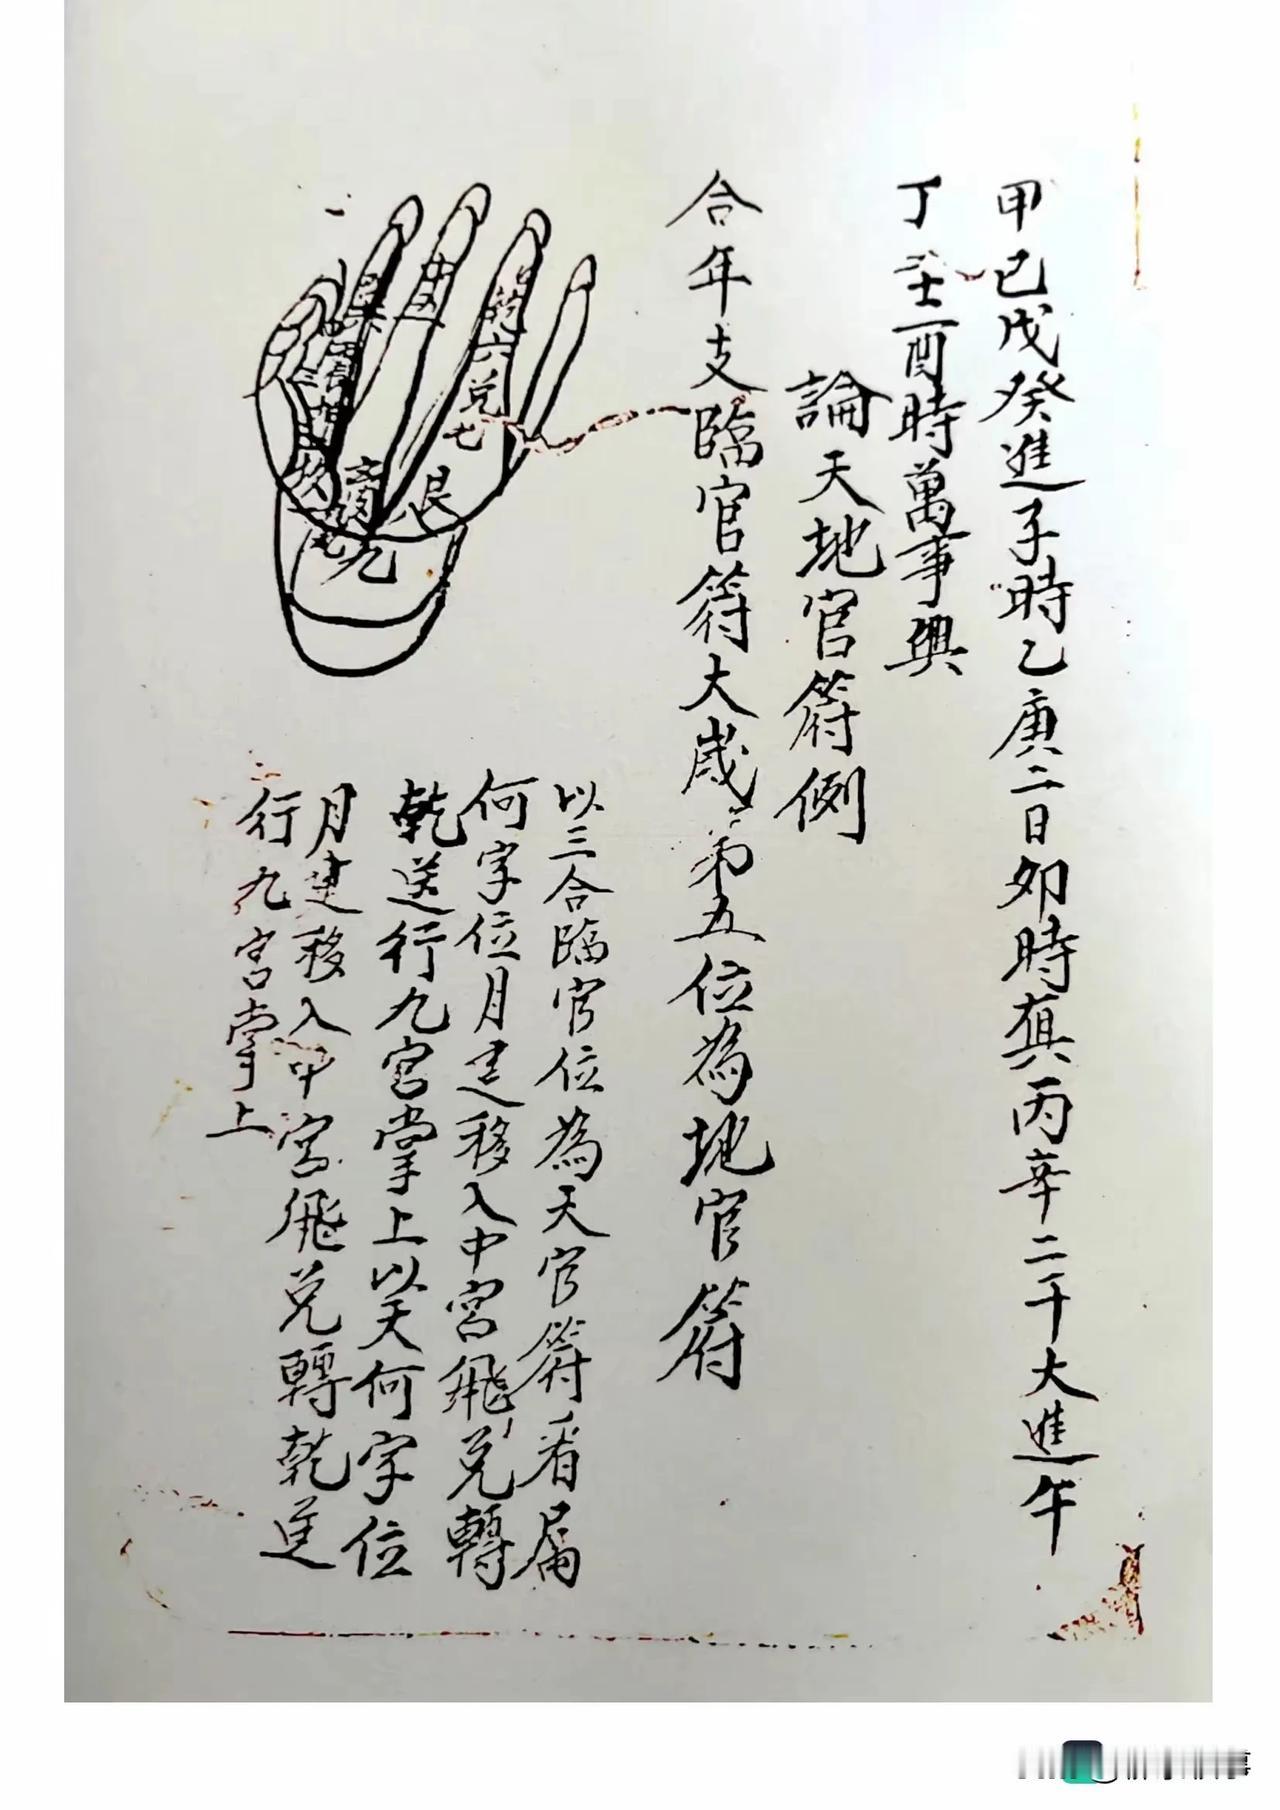 甲己戊癸進子時乙庚二日卯時真丙辛二干大進午
丁壬酉時萬事興
論天地官符例
合年支臨官符大歲第五位為地官符
以三合臨官位為天官符看屬
何字位月建移入中宮飛兌轉
乾送行九宮掌上以天何字位
月建移入中宮飛兌轉乾送
行九宮掌上
中五
乾六
兌七
艮八
離九